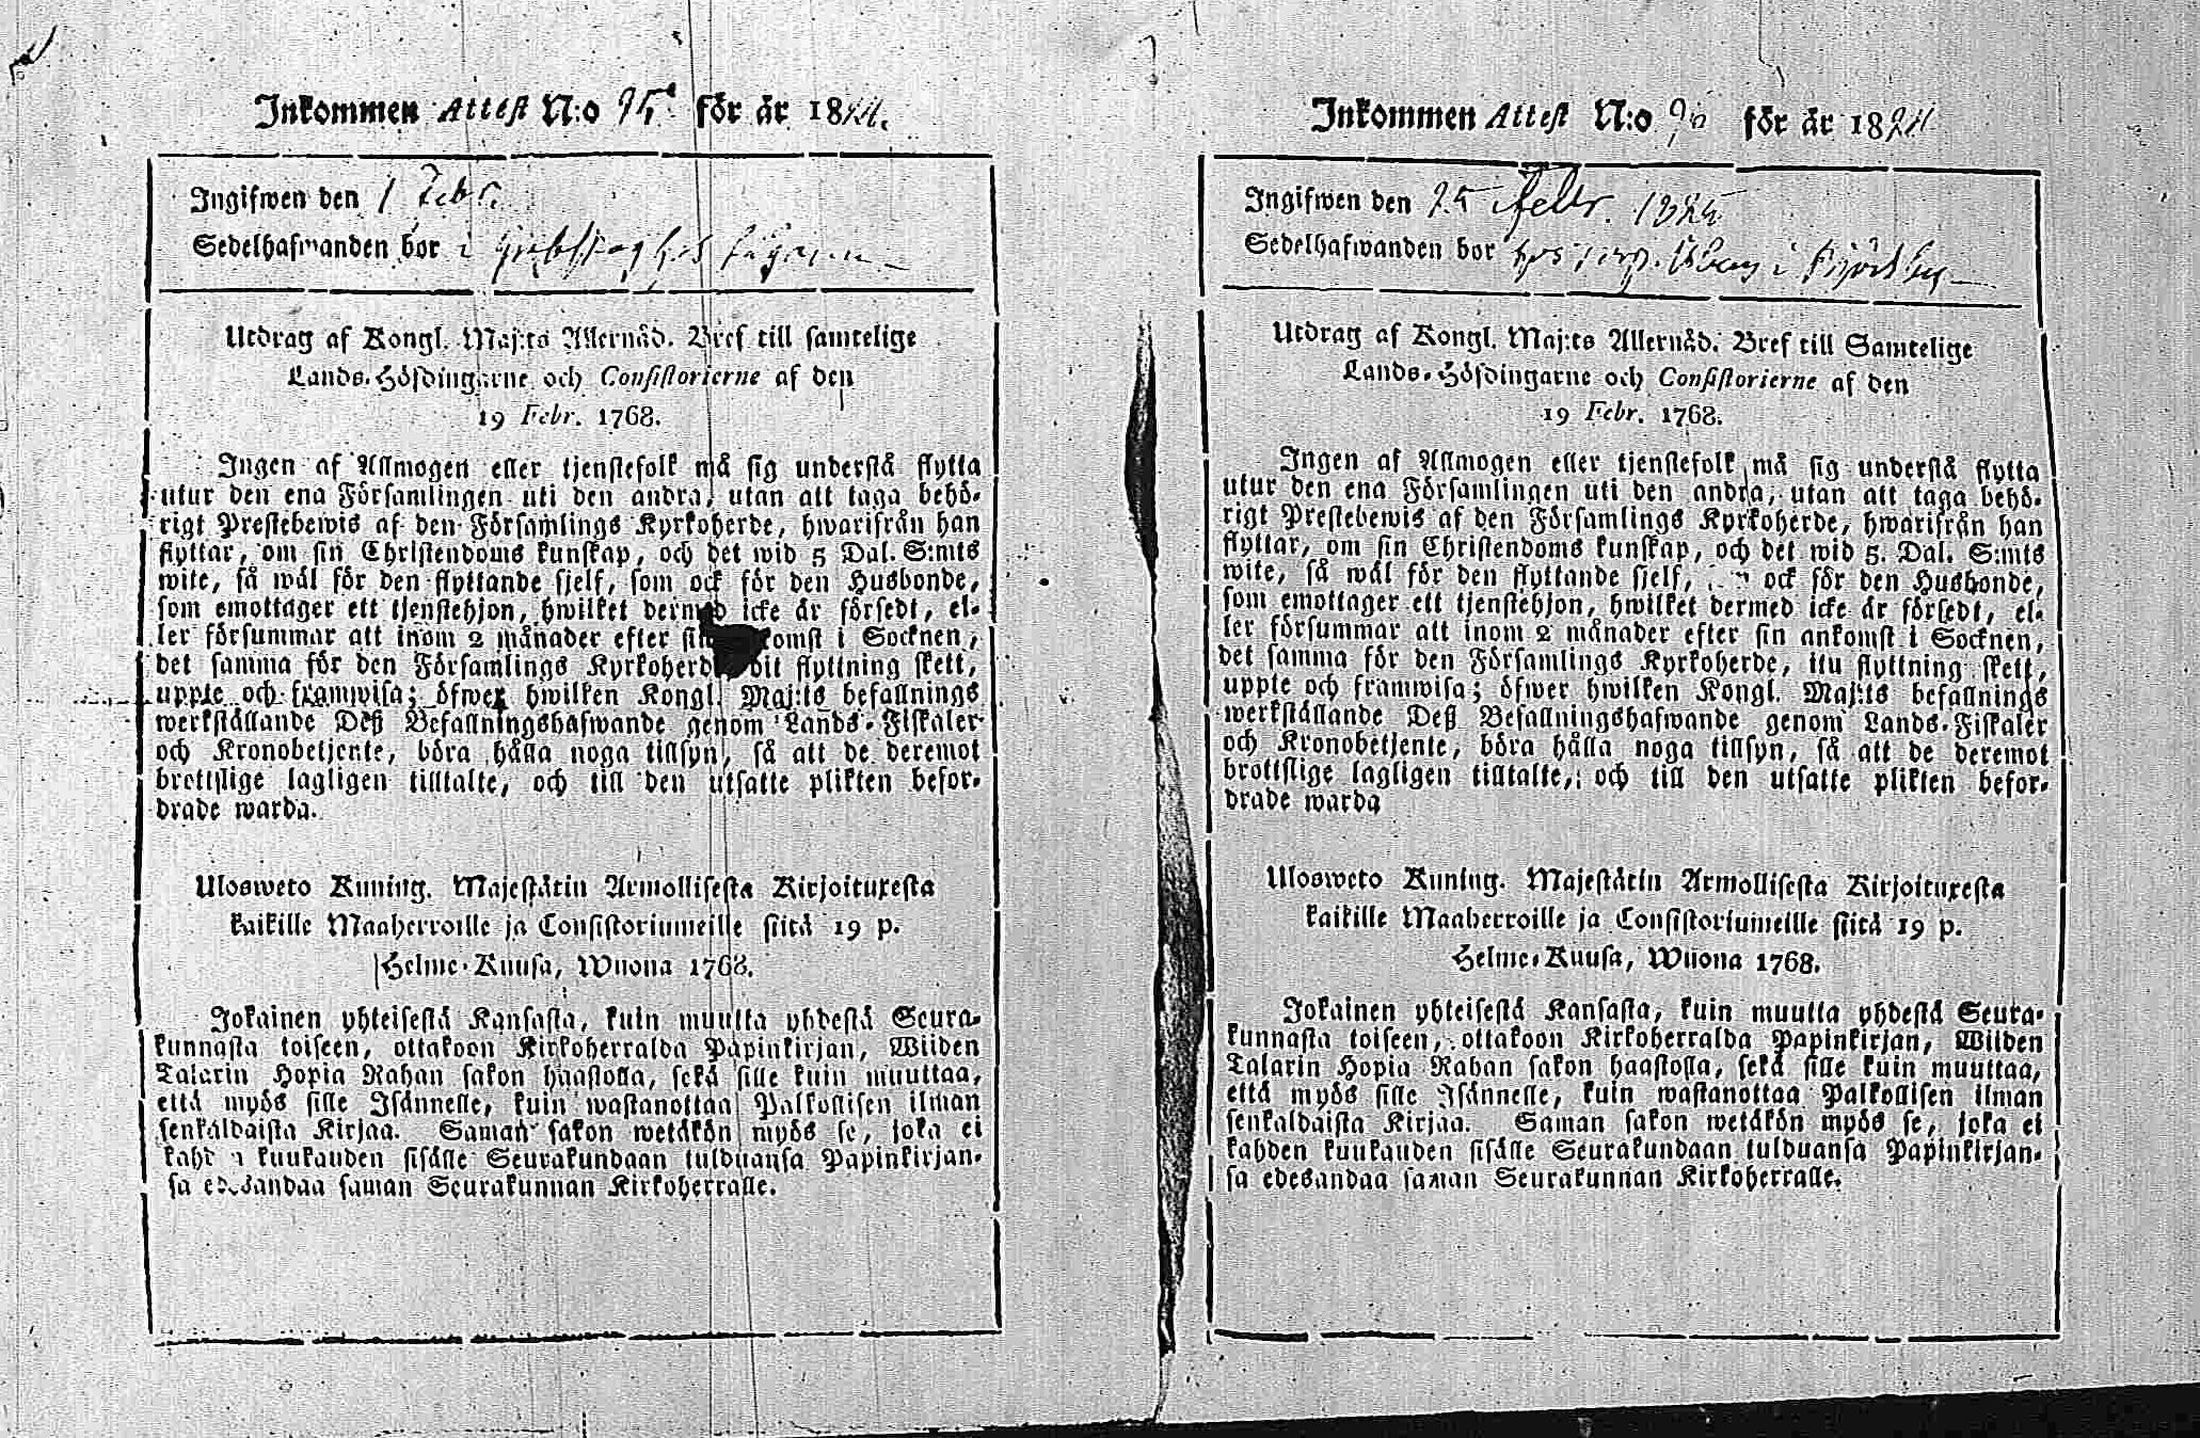 Inkommen Attest N:o 95 för år 18
Ingifwen den 1 Febr.
Sedelhafwanden bor i
Utdrag af Kongl. Maj:ts Allernåd. Bref till samtelige
Lands-Höfdingarne och Consistorierne af den
19 Febr. 1768.
Ingen af Allmogen eller tjenstefolk må sig understå flytta
utur den ena Församlingen uti den andra, utan att taga behö-
rigt Prestebewis af den Församlings Kyrkoherde, hwarifrån han
flyttar, om sin Christendoms kunskap, och det wid 5 Dal. S:mts
wite, så wäl för den flyttande sjelf, som ock för den Husbonde,
som emottager ett tjenstehjon, hwilket dermed icke är försedt, el-
ler försummar att inom 2 månader efter komst i Socknen,
det samma för den Församlings Kyrkoherde dit flyttning skett,
uppte och framwisa; öfwer hwilken Kongl Maj:ts befallnings
werkställande Deß Befallningshafwande genom Lands-Fiskaler
och Kronobetjente, böra hålla noga tillsyn, så att de deremot
brottslige lagligen tilltalte, och till den utsatte plikten befor-
drade warda.
Ulosweto Kuning. Majestätin Armollisesta Kirjoituxesta
kaikille Maaherroille ja Consistoriumeille siitä 19 p.
Helme-Kuusa, Wuona 1768.
Jokainen yhteisestä Kansasta, kuin muutta yhdestä Seura-
kunnasta toiseen, ottakoon Kirkoherralda Papinkirjan, Wiiden
Talarin Hopia Rahan sakon haastolla, sekä sille kuin muuttaa,
että myös sille Isännelle, kuin wastanottaa Palkollisen ilman
senkaldaista Kirjaa. Saman sakon wetäkön myös se, joka ei
kuukauden sisälle Seurakundaan tulduansa Papinkirjan-
sa edesandaa saman Seurakunnan Kirkoherralle.
Inkommen Attest N:o 96 för år 18
Ingifwen den 25 Febr. 1825
Sedelhafwanden bor hos i
Utdrag af Kongl. Maj:ts Allernåd. Bref till Samtelige
Lands-Höfdingarne och Consistorierne af den
19 Febr. 1768.
Ingen af Allmogen eller tjenstefolk må sig understå flytta
utur den ena Församlingen uti den andra, utan att taga behö-
rigt Prestebewis af den Församlings Kyrkoherde, hwarifrån han
flyttar, om sin Christendoms kunskap, och det wid 5. Dal. S:mts
wite, så wäl för den flyttande sjelf, ock för den Husbonde,
som emottager ett tjenstehjon, hwilket dermed icke är försedt, el-
ler försummar att inom 2 månader efter sin ankomst i Socknen,
det samma för den Församlings Kyrkoherde, itu flyttning skett,
uppte och framwisa; öfwer hwilken Kongl. Maj:ts befallnings
werkställande Deß Befallningshafwande genom Lands-Fiskaler
och Kronobetjente, böra hålla noga tillsyn, så att de deremot
brottslige lagligen tilltalte, och till den utsatte plikten befor-
drade warda
Ulosweto Kuning. Majestätin Armollisesta Kirjoituxesta
kaikille Maaherroille ja Consistoriumeille siitä 19 p.
Helme-Kuusa, Wuona 1768.
Jokainen yhteisestä Kansasta, kuin muutta yhdestä Seura-
kunnasta toiseen, ottakoon Kirkoherralda Papinkirjan, Wiiden
Talarin Hopia Rahan sakon haastolla, sekä sille kuin muuttaa,
että myös sille Isännelle, kuin wastanottaa Palkollisen ilman
senkaldaista Kirjaa. Saman sakon wetäkön myös se, joka ei
kahden kuukauden sisälle Seurakundaan tulduansa Papinkirjan-
sa edesandaa saman Seurakunnan Kirkoherralle.